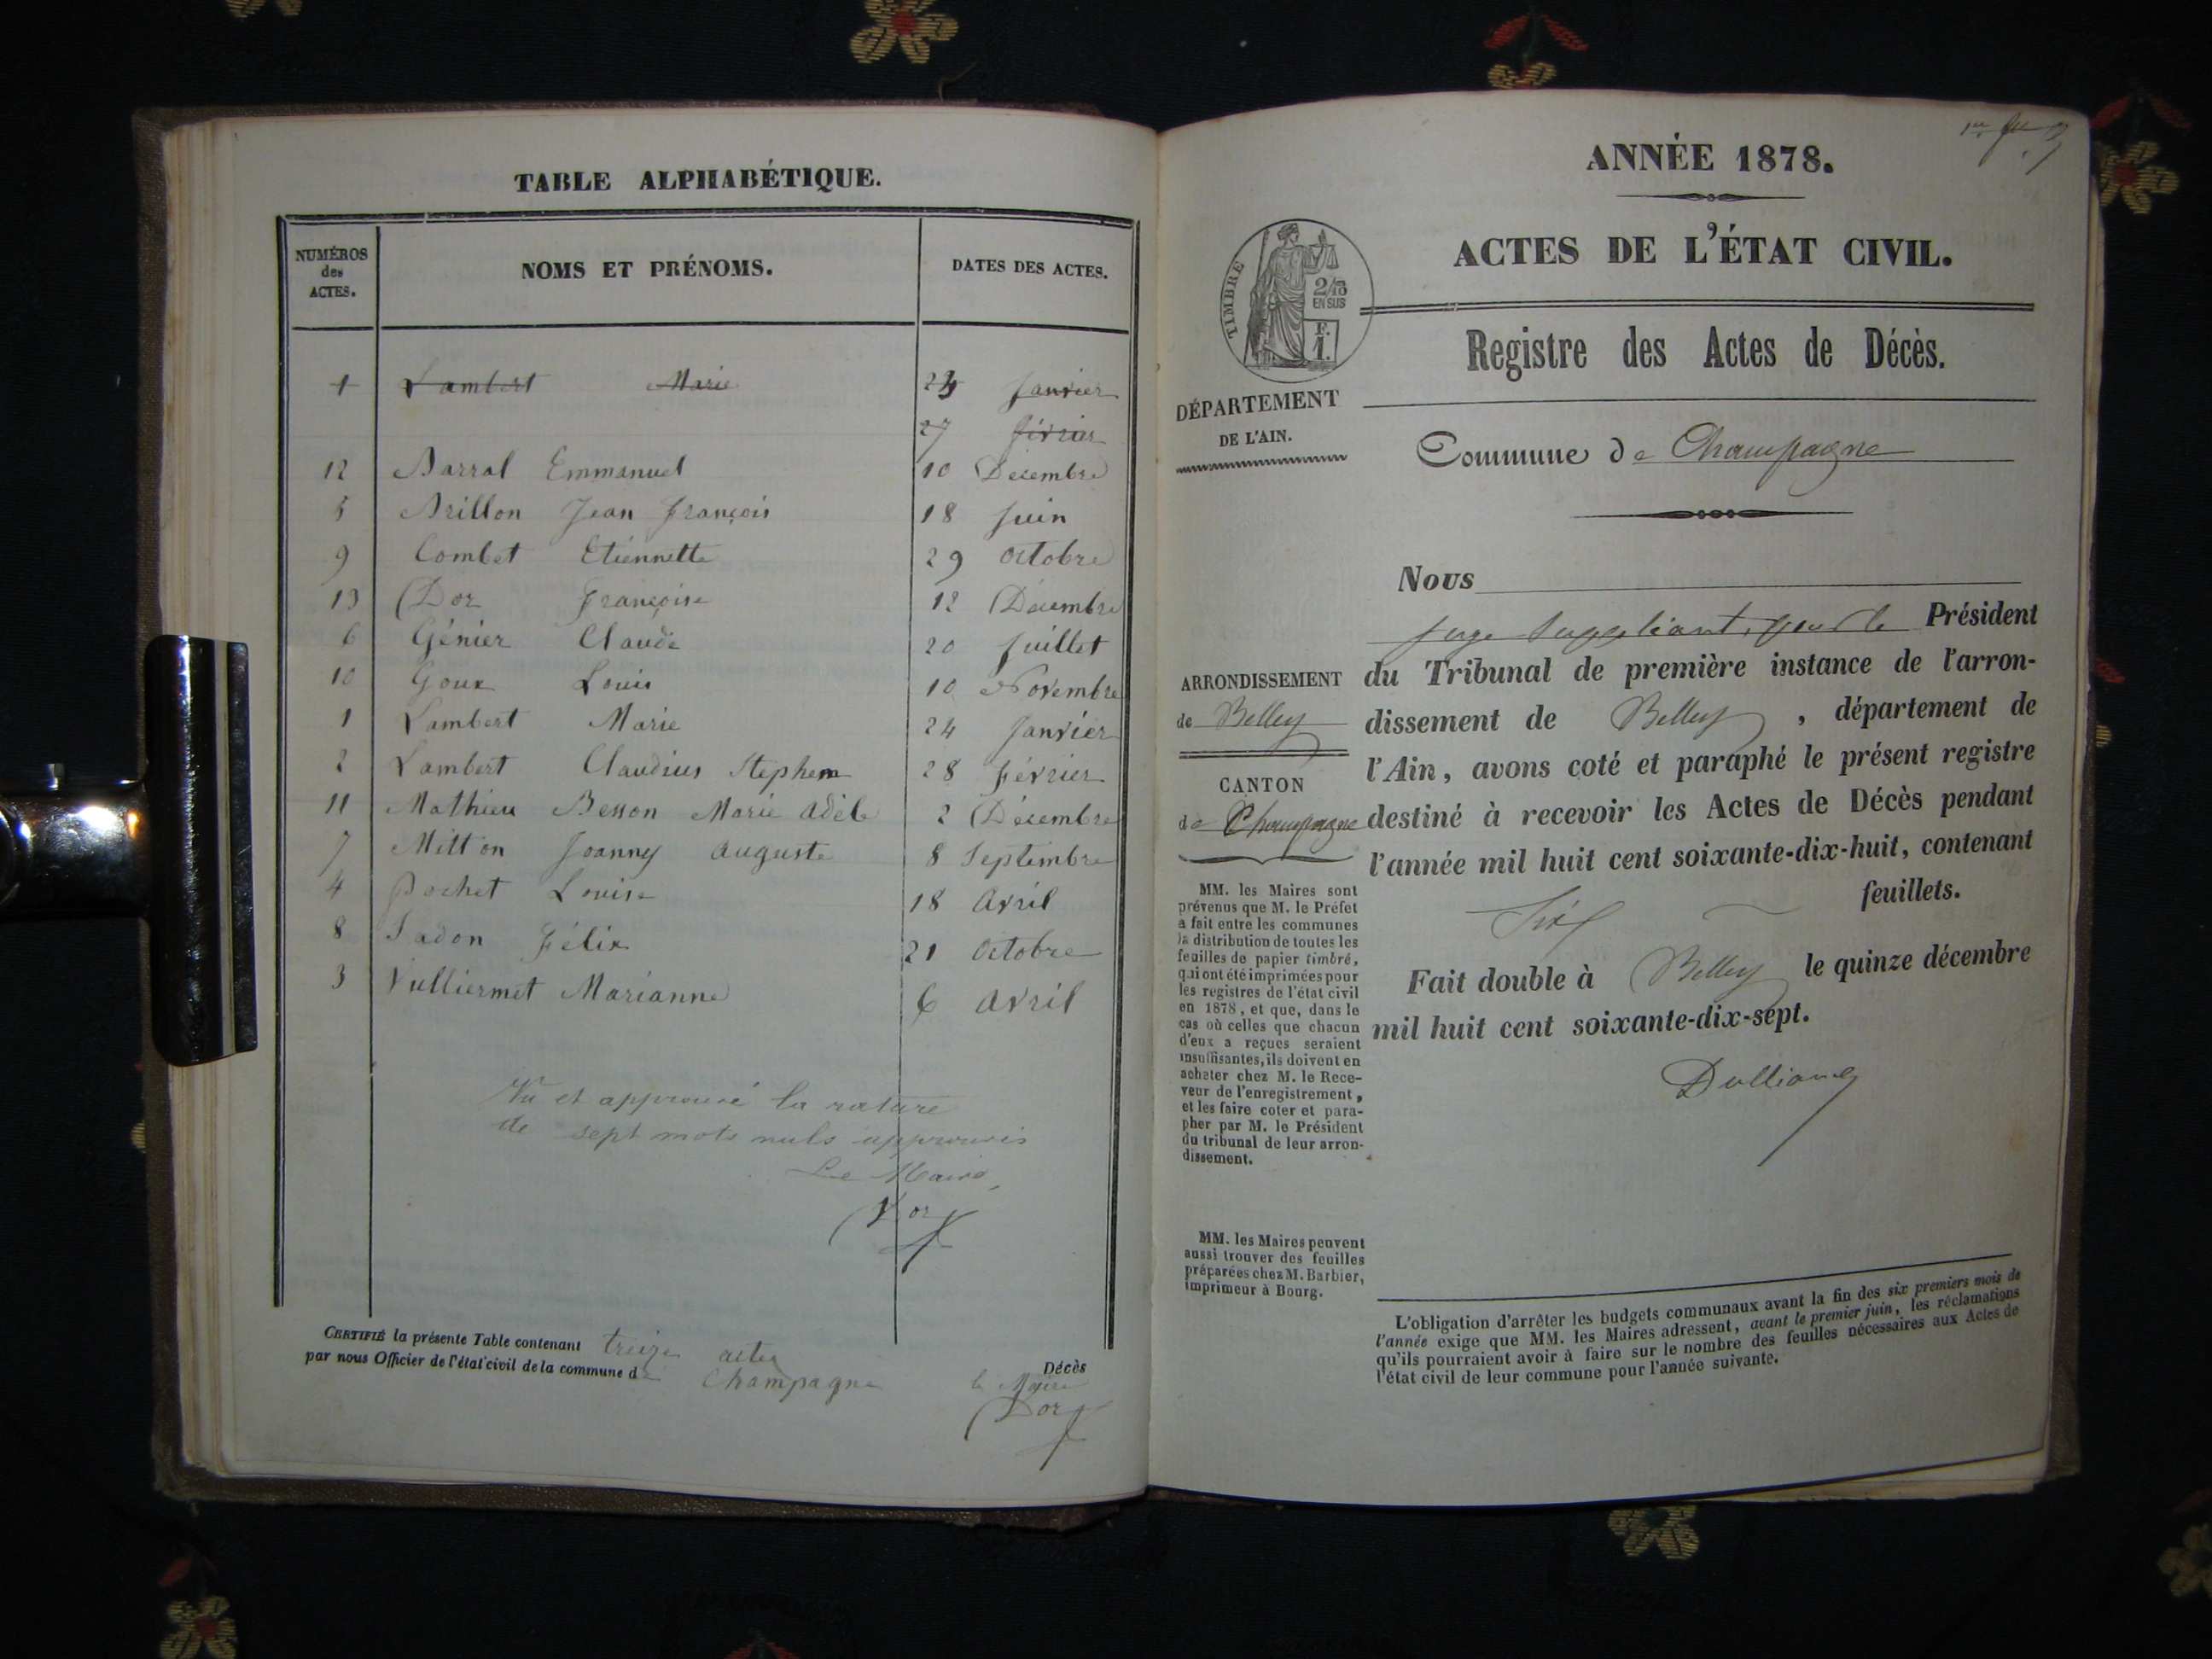 TABLE ALPHABÉTIQUE.
NUMÉROS
des
ACTES.
NOMS ET PRÉNOMS.
DATES DES ACTES.
1 Lambert Marie 24 Janvier
27 février
12 Barral Emmanuel 10 Décembre
5 Brillon Jean françois 18 Juin
9 Combet Etiennette 29 octobre
13 Dor françoise 12 Décembre
6 Génier Claude 20 Juillet
10 Goux Louis 10 Novembre
1 Lambert Marie 24 Janvier
2 Lambert Claudius Stephem 28 Février
11 Mathieu Besson Marie Adèle 2 Décembre
7 Mitton Joanny auguste 8 Septembre
4 Pochet Louise 18 Avril
8 Sadon Félix 21 Octobre
3 Vulliermet Marianne 6 Avril
Vu et approuvé la rature
de sept mots nuls approuvés
Le Maire,
Dor
CERTIFIÉ la présente Table contenant treize actes Décès
par nous Officier de l'état civil de la commune de Champagne
le Maire
Dor
ANNÉE 1878.
ACTES DE L'ÉTAT CIVIL.
TIMBRE
2/10
EN SUS
F.
1.
Registre des Actes de Décès.
DÉPARTEMENT
DE L'AIN.
Commune de Champagne
Nous
Juge Suppléant, pour le Président
du Tribunal de première instance de l'arron-
dissement de Belley, département de
l'Ain, avons coté et paraphé le présent registre
destiné à recevoir les Actes de Décès pendant
l'année mil huit cent soixante-dix-huit, contenant
Six feuillets.
Fait double à Belley le quinze décembre
mil huit cent soixante-dix-sept.
ARRONDISSEMENT
de Belley
CANTON
de Champagne
MM. les Maires sont
prévenus que M. le Préfet
a fait entre les communes
la distribution de toutes les
feuilles de papier timbré,
qui ont été imprimées pour
les registres de l'état civil
en 1878, et que, dans le
cas où celles que chacun
d'eux a reçues seraient
insuffisantes, ils doivent en
acheter chez M. le Rece-
veur de l'enregistrement,
et les faire coter et para-
pher par M. le Président
du tribunal de leur arron-
dissement.
MM. les Maires peuvent
aussi trouver des feuilles
préparées chez M. Barbier,
imprimeur à Bourg.
L'obligation d'arrêter les budgets communaux avant la fin des six premiers mois de
l'année exige que MM. les Maires adressent, avant le premier juin, les réclamations
qu'ils pourraient avoir à faire sur le nombre des feuilles nécessaires aux Actes de
l'état civil de leur commune pour l'année suivante.